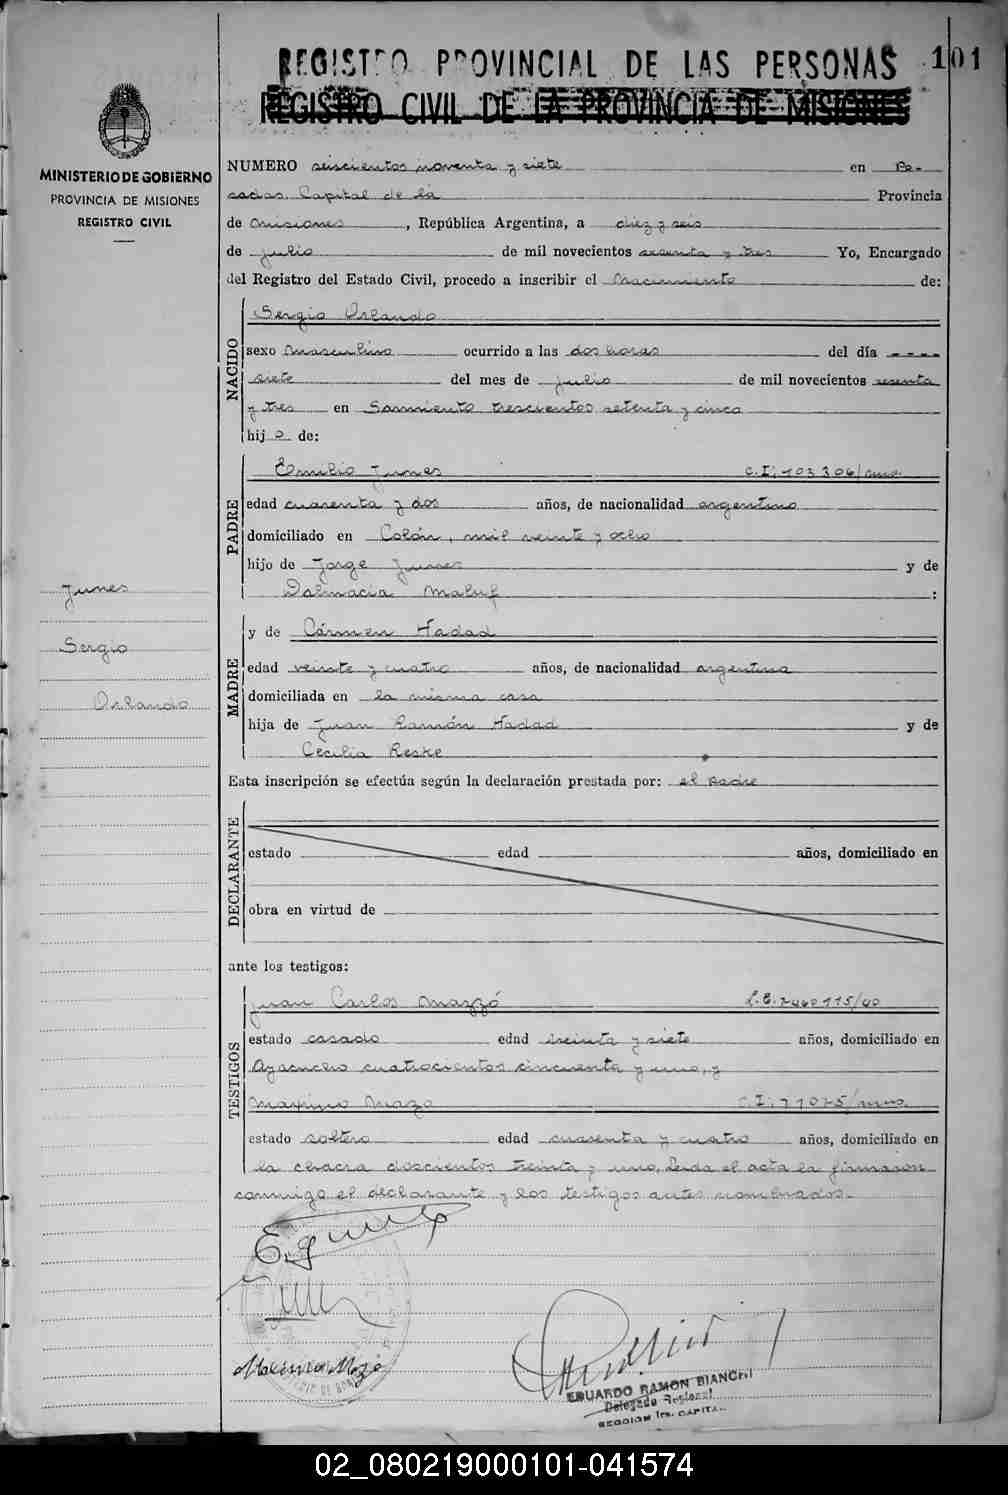 REGISTRO PROVINCIAL DE LAS PERSONAS 101
REGISTRO CIVIL DE LA PROVINCIA DE MISIONES
MINISTERIO DE GOBIERNO
PROVINCIA DE MISIONES
REGISTRO CIVIL
NUMERO seiscientos noventa y siete en Po-
sadas. Capital de la Provincia
de Misiones, República Argentina, a diez y seis
de julio de mil novecientos sesenta y tres Yo, Encargado
del Registro del Estado Civil, procedo a inscribir el Nacimiento de:
NACIDO
Sergio Orlando
sexo masculino ocurrido a las dos horas del día ----
siete del mes de julio de mil novecientos sesenta
y tres en Sarmiento trescientos setenta y cinco
hijo de:
PADRE
Emilio Junes C.I. 103306/mns.
edad cuarenta y dos años, de nacionalidad argentino
domiciliado en Colón, mil veinte y ocho
hijo de Jorge Junes y de
Dalmacia Maluf :
Junes
Sergio
Orlando
MADRE
y de Cármen Hadad
edad veinte y cuatro años, de nacionalidad argentina
domiciliada en la misma casa
hija de Juan Ramón Hadad y de
Cecilia Reske
Esta inscripción se efectúa según la declaración prestada por: el padre
DECLARANTE
estado edad años, domiciliado en
obra en virtud de
ante los testigos:
TESTIGOS
Juan Carlos Mazzó L.E. 7460115/40
estado casado edad treinta y siete años, domiciliado en
Ayacucho cuatrocientos cincuenta y uno, y
Maximo Mazo C.I. 11075/mns.
estado soltero edad cuarenta y cuatro años, domiciliado en
la chacra doscientos treinta y uno. Leida el acta la firmaron
conmigo el declarante y los testigos antes nombrados.-
E. Junes
Maximo Mazo
EDUARDO RAMON BIANCHI
Delegado Regional
REGION 1ra. CAPITAL
02_080219000101-041574